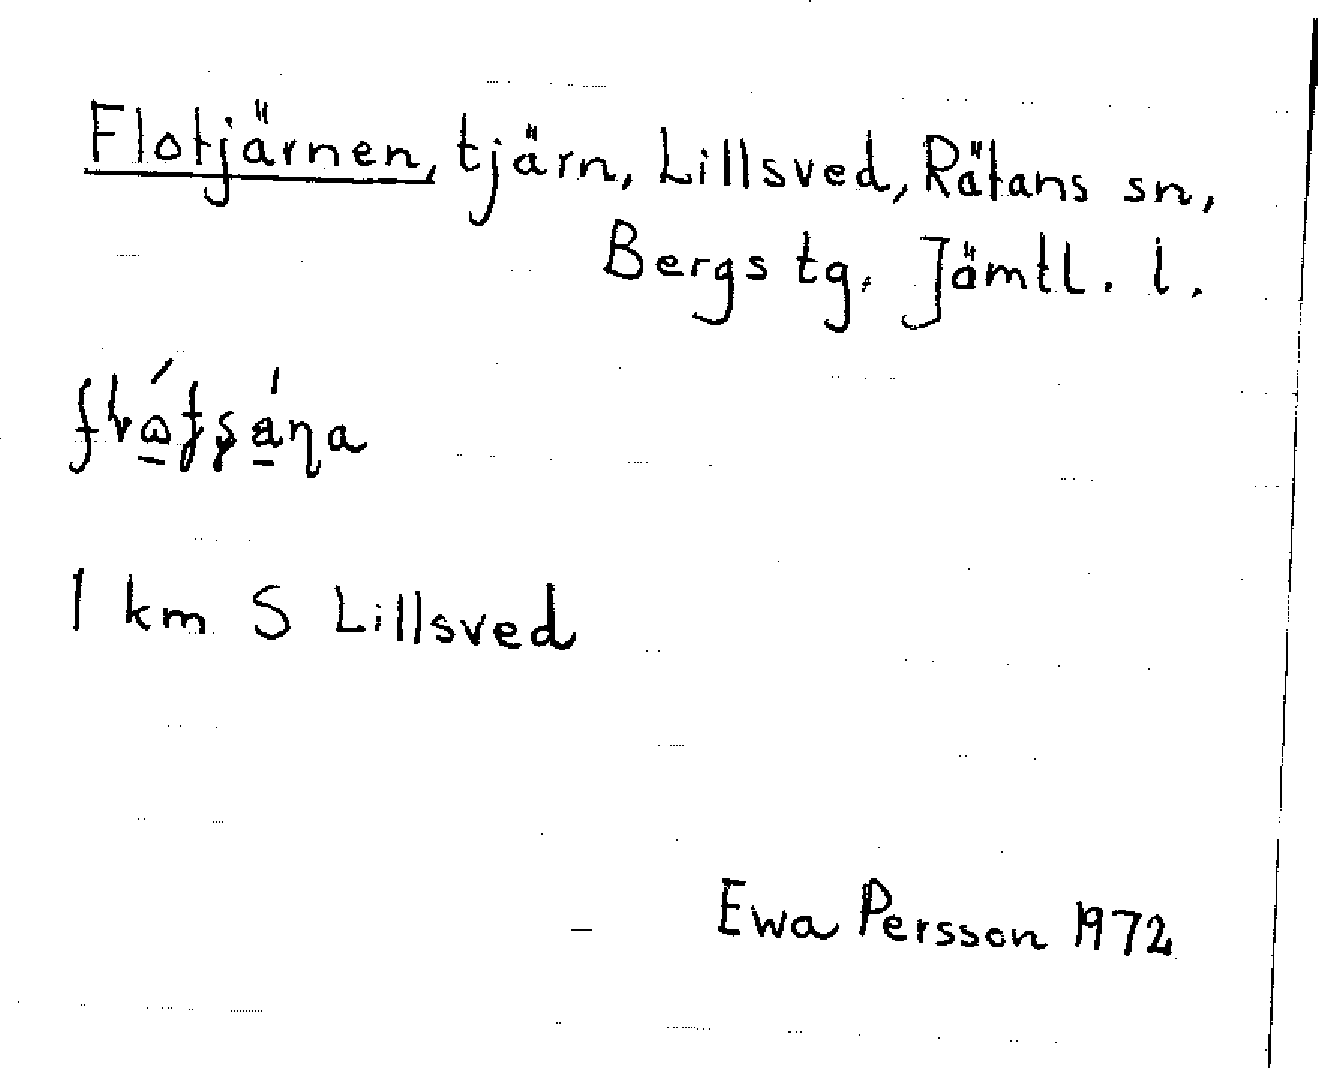 Flotjärnen, tjärn, Lillsved, Rätans sn,
Bergs tg. Jämtl. l.
1 km S Lillsved
Ewa Persson 1972